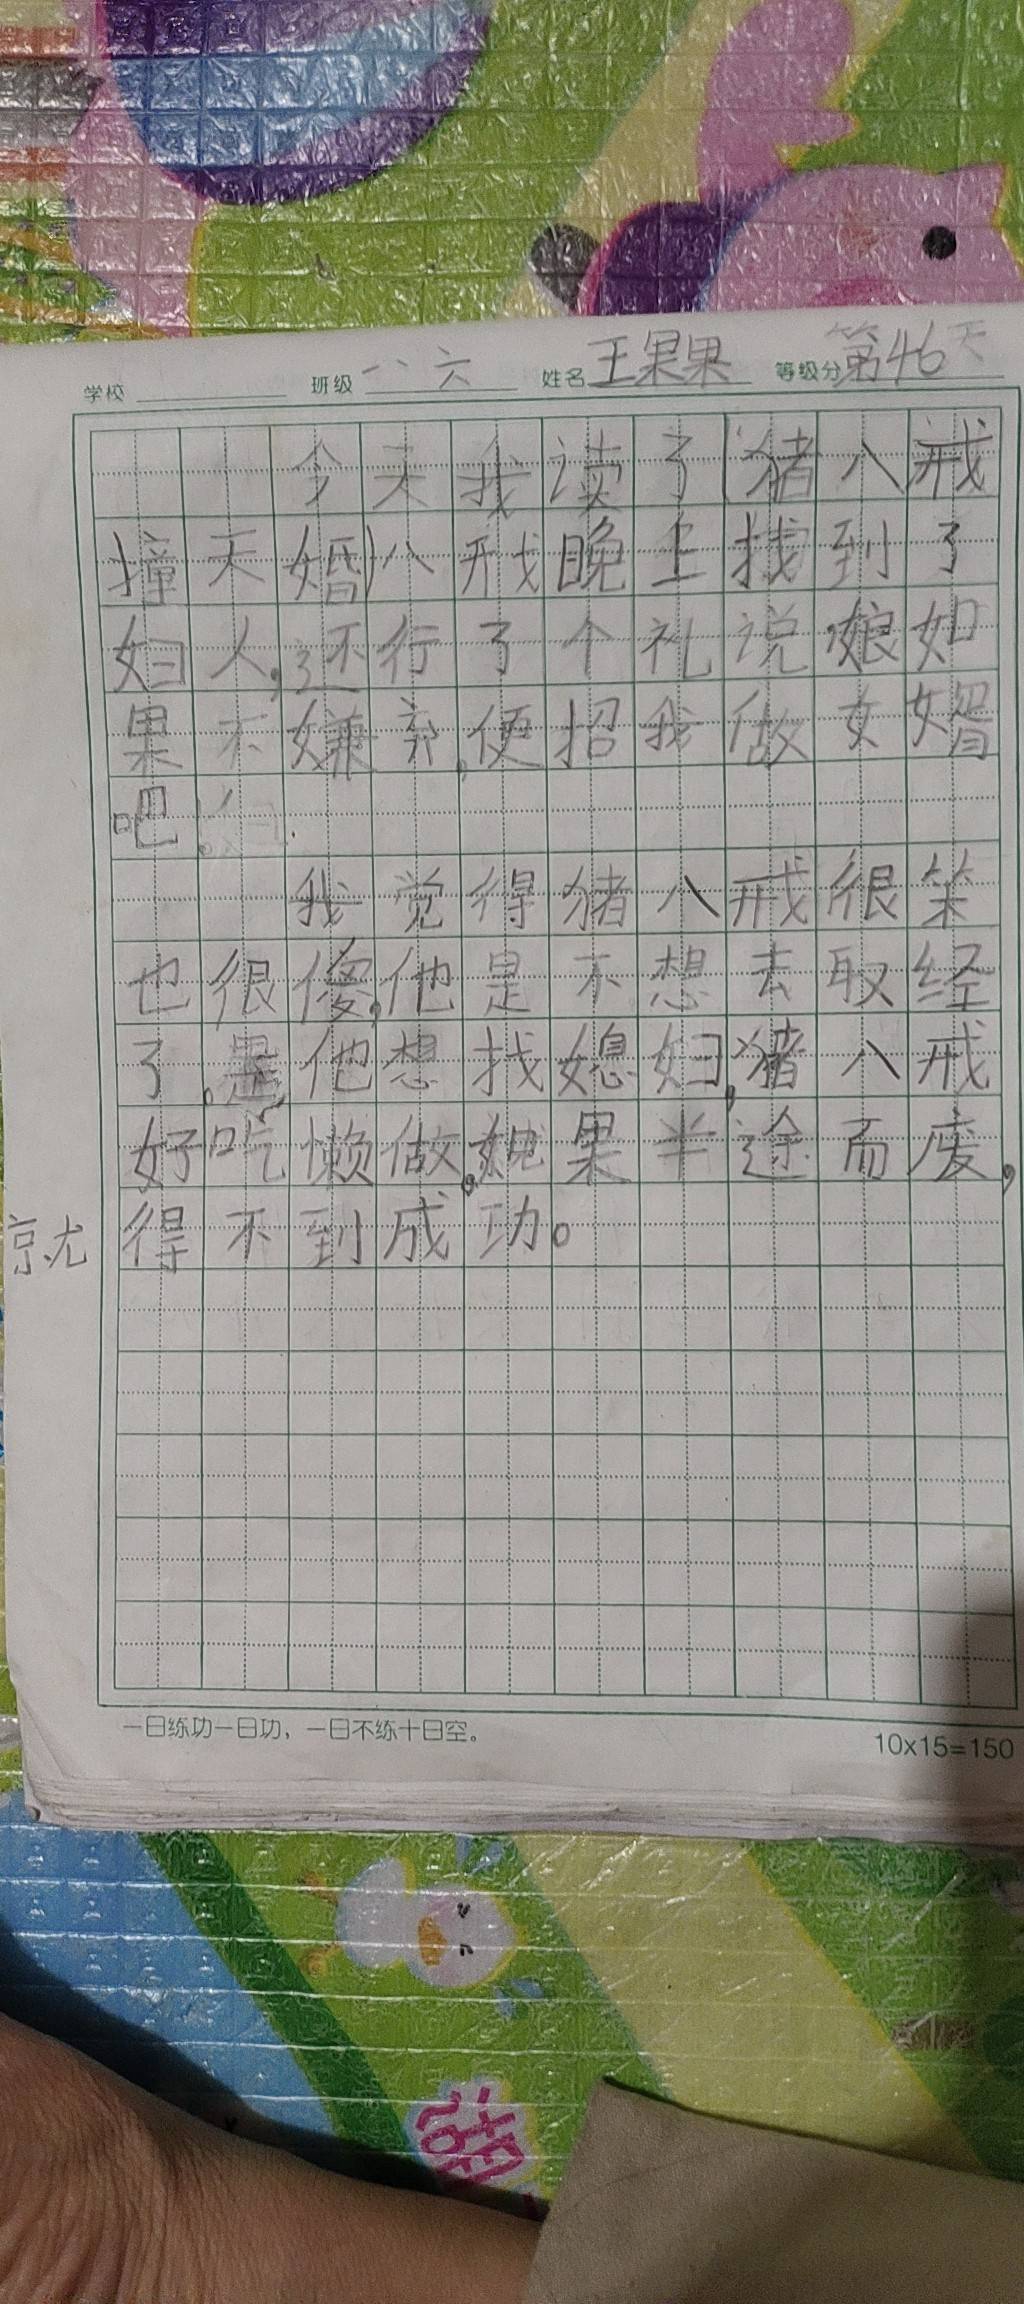 学校 班级 一、六 姓名 王果果 等级分 第46天
今天我读了(猪八戒
撞天婚)八戒晚上找到了
妇人,还行了个礼说娘如
果不嫌弃,便招我做女婿
吧。
我觉得猪八戒很笨
也很傻,他是不想去取经
了。是他想找媳妇,猪八戒
好吃懒做,如果半途而废,
就得不到成功。
一日练功一日功,一日不练十日空。
10x15=150